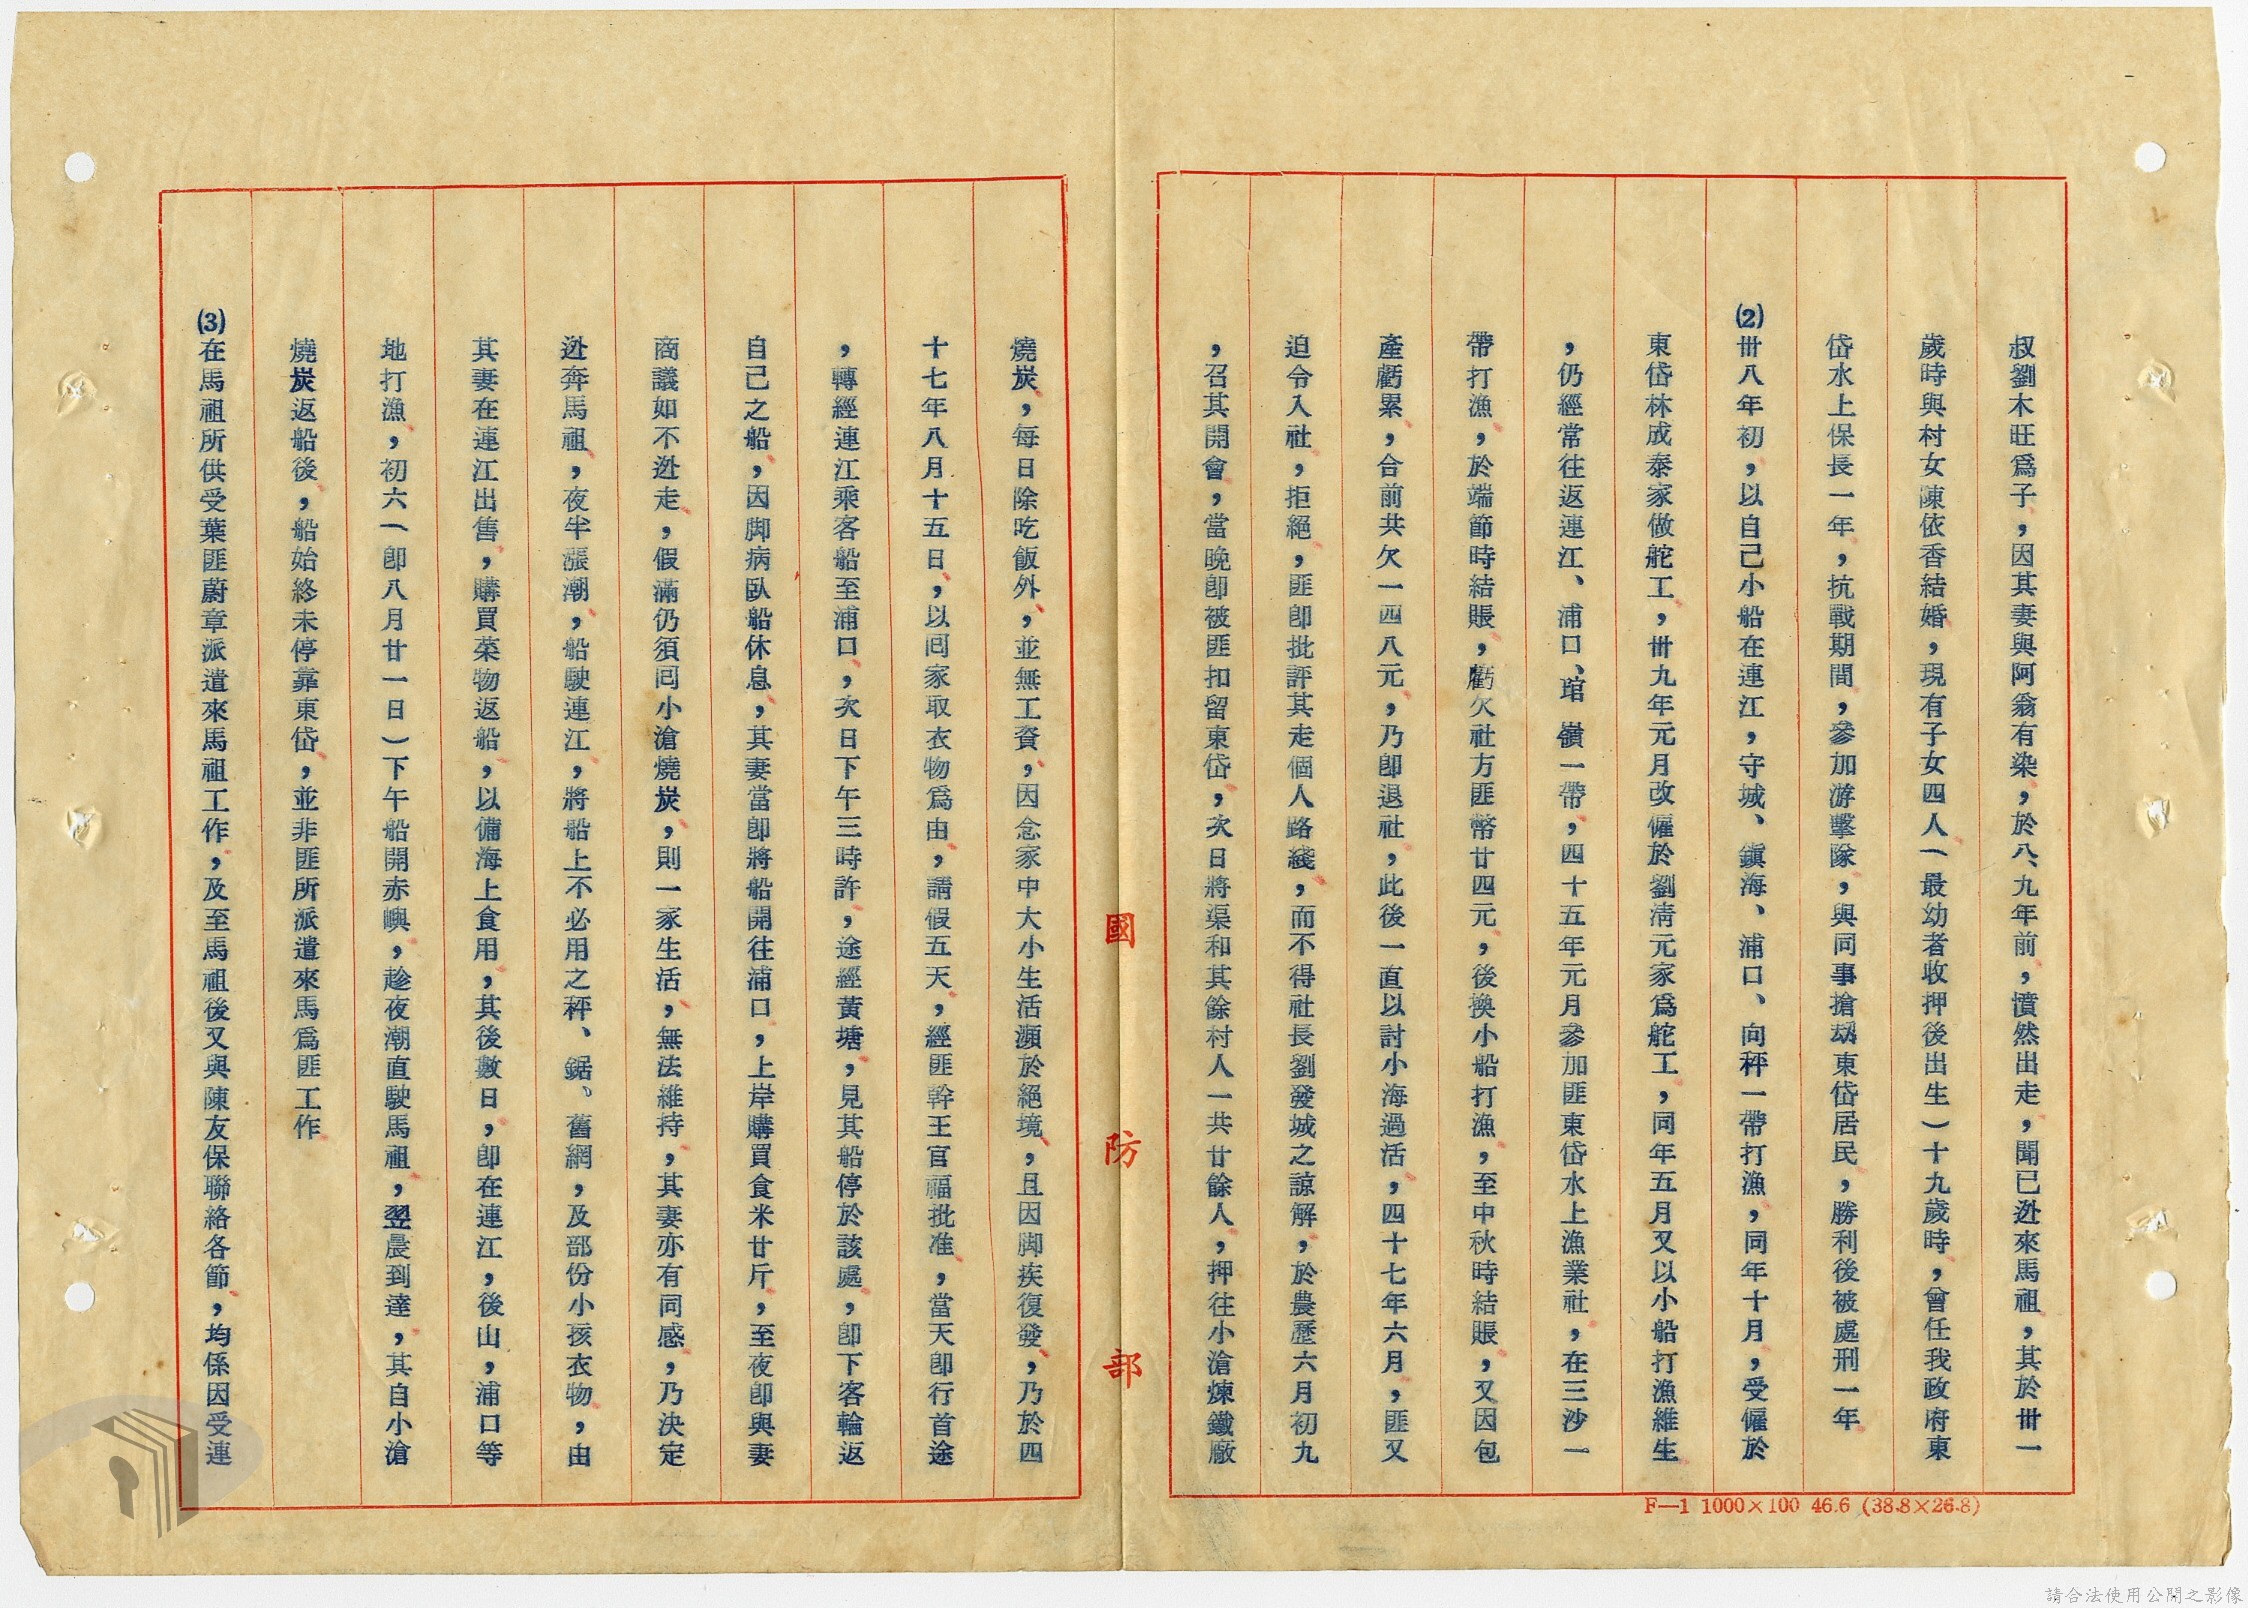 叔劉木旺爲子，因其妻與阿翁有染，於八、九年前，憤然出走，聞已逃來馬祖，其於卅一
歲時與村女陳依香結婚，現有子女四人（最幼者收押後出生）十九歲時，曾任我政府東
岱水上保長一年，抗戰期間，參加游擊隊，與同事搶刼東岱居民，勝利後被處刑一年
⑵卅八年初，以自己小船在連江，守城、鎭海、浦口、向秤一帶打漁，同年十月，受僱於
東岱林成泰家做舵工，卅九年元月改僱於劉淸元家爲舵工，同年五月又以小船打漁維生
，仍經常往返連江、浦口、琯嶺一帶，四十五年元月參加匪東岱水上漁業社，在三沙一
帶打漁，於端節時結賬，虧欠社方匪幣廿四元，後換小船打漁，至中秋時結賬，又因包
產虧累，合前共欠一四八元，乃卽退社，此後一直以討小海過活，四十七年六月，匪又
迫令入社，拒絕，匪卽批評其走個人路綫，而不得社長劉發城之諒解，於農歷六月初九
，召其開會，當晚卽被匪扣留東岱，次日將渠和其餘村人一共廿餘人，押往小滄煉鐵廠
國防部
F—1 1000×100 46.6 (38.8×26.8)
燒炭，每日除吃飯外，並無工資，因念家中大小生活瀕於絕境，且因脚疾復發，乃於四
十七年八月十五日，以囘家取衣物爲由，請假五天，經匪幹王官福批准，當天卽行首途
，轉經連江乘客船至浦口，次日下午三時許，途經黃塘，見其船停於該處，卽下客輪返
自己之船，因脚病臥船休息，其妻當卽將船開往浦口，上岸購買食米廿斤，至夜卽與妻
商議如不逃走，假滿仍須囘小滄燒炭，則一家生活，無法維持，其妻亦有同感，乃決定
逃奔馬祖，夜半漲潮，船駛連江，將船上不必用之秤、鋸、舊網，及部份小孩衣物，由
其妻在連江出售，購買菜物返船，以備海上食用，其後數日，卽在連江，後山，浦口等
地打漁，初六（卽八月廿一日）下午船開赤嶼，趁夜潮直駛馬祖，翌晨到達，其自小滄
燒炭返船後，船始終未停靠東岱，並非匪所派遣來馬爲匪工作
⑶在馬祖所供受葉匪蔚章派遣來馬祖工作，及至馬祖後又與陳友保聯絡各節，均係因受連
請合法使用公開之影像